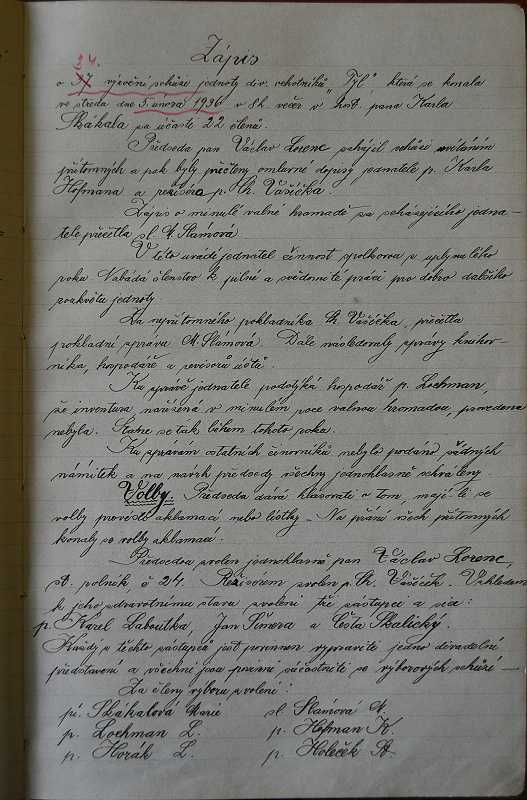 Zápis
24.
o 37 výroční schůzi jednoty div. ochotníků „Tyl", která se konala
ve středu dne 5. února 1936 v 8 h. večer v host. pana Karla
Skákala za účasti 22 členů.
Předseda pan Václav Lorenc zahájil schůzi uvítáním
přítomných a pak byly přečteny omluvné dopisy jednatele p. Karla
Hofmana a režiséra p. Th. Vašíčka.
Zápis o minulé valné hromadě za scházejícího jedna-
tele přečetla sl. M. Slámová.
V této uvádí jednatel činnost spolkovou z uplynulého
roku. Nabádá členstvo k pilné a svědomité práci pro dobro dalšího
rozkvětu jednoty.
Za nepřítomného pokladníka Th. Vašíčka, přečetla
pokladní zprávu M. Slámová. Dále následovaly zprávy knihov-
níka, hospodáře a revisorů účtů.
Ku zprávě jednatele podotýká hospodář p. Lochman,
že inventura, nařízená v minulém roce valnou hromadou, provedena
nebyla. Stane se tak během tohoto roka.
Ku zprávám ostatních činovníků nebylo podáno žádných
námitek a na návrh předsedy všechny jednohlasně schváleny.
Volby: Předseda dává hlasovati o tom, mají-li se
volby provésti aklamací nebo lístky – Na přání všech přítomných
konaly se volby aklamací.
Předsedou zvolen jednohlasně pan Václav Lorenc,
st. polník, č 24. Režisérem zvolen p. Th. Vašíček. Vzhledem
k jeho zdravotnímu stavu zvoleni tři zástupci a sice:
p. Karel Laboutka, Jan Šmera a Čosta Skalický.
Každý z těchto zástupců jest povinnen vypraviti jedno divadelní
představení a všichni jsou povinni súčastniti se výborových schůzí –
Za členy výboru zvoleni:
pí. Skákalová Marie sl. Slámová M.
p. Lochman L. p. Hofman K.
p. Horák L. p. Holeček St.